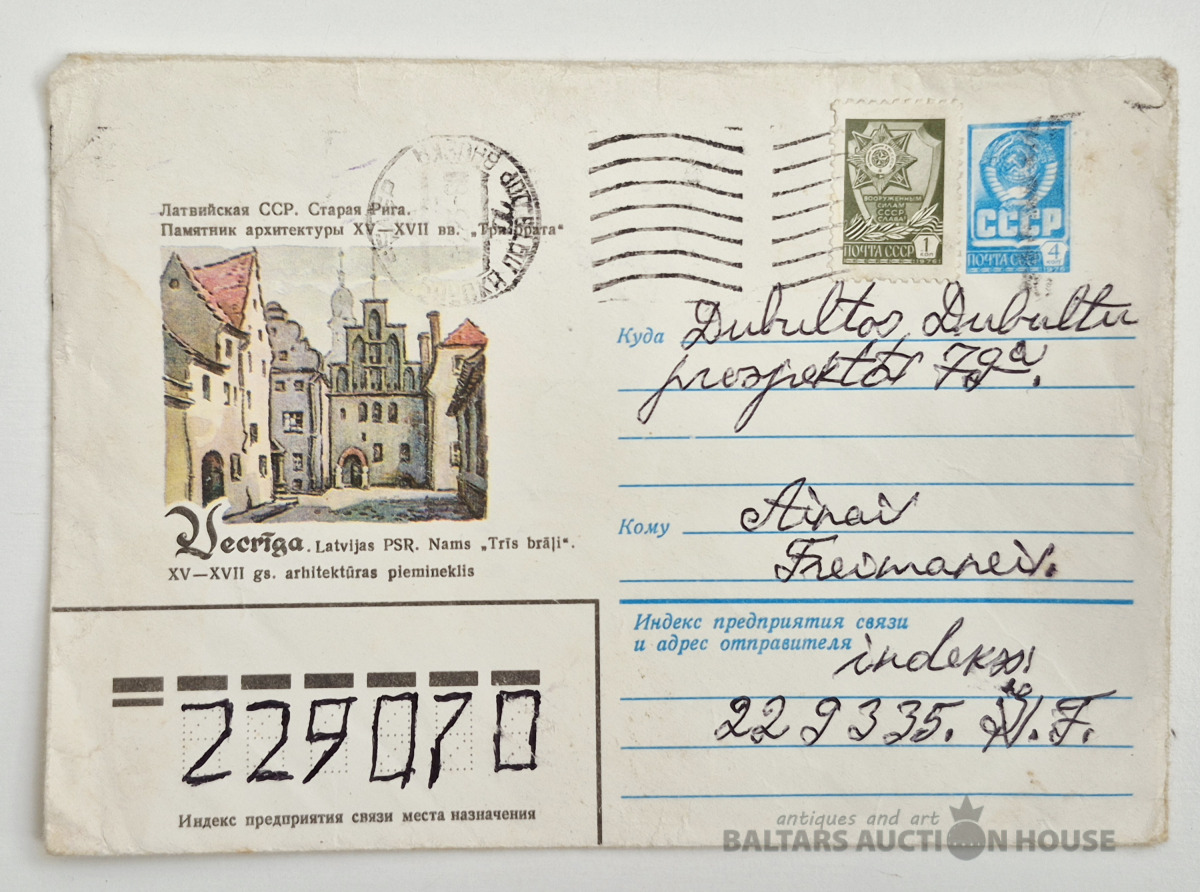 Латвийская ССР. Старая Рига.
Памятник архитектуры XV—XVII вв. „Три брата“
Vecrīga. Latvijas PSR. Nams „Trīs brāļi“.
XV—XVII gs. arhitektūras piemineklis
ВООРУЖЕННЫМ
СИЛАМ
СССР
СЛАВА!
ПОЧТА СССР 1 коп
1976
СССР
ПОЧТА СССР 4 коп
Куда Dubultos, Dubultu
prospektā 79a.
Кому Ainai
Freimanei.
Индекс предприятия связи
и адрес отправителя indekss
229335. F.
229070
Индекс предприятия связи места назначения
antiques and art
BALTARS AUCTION HOUSE